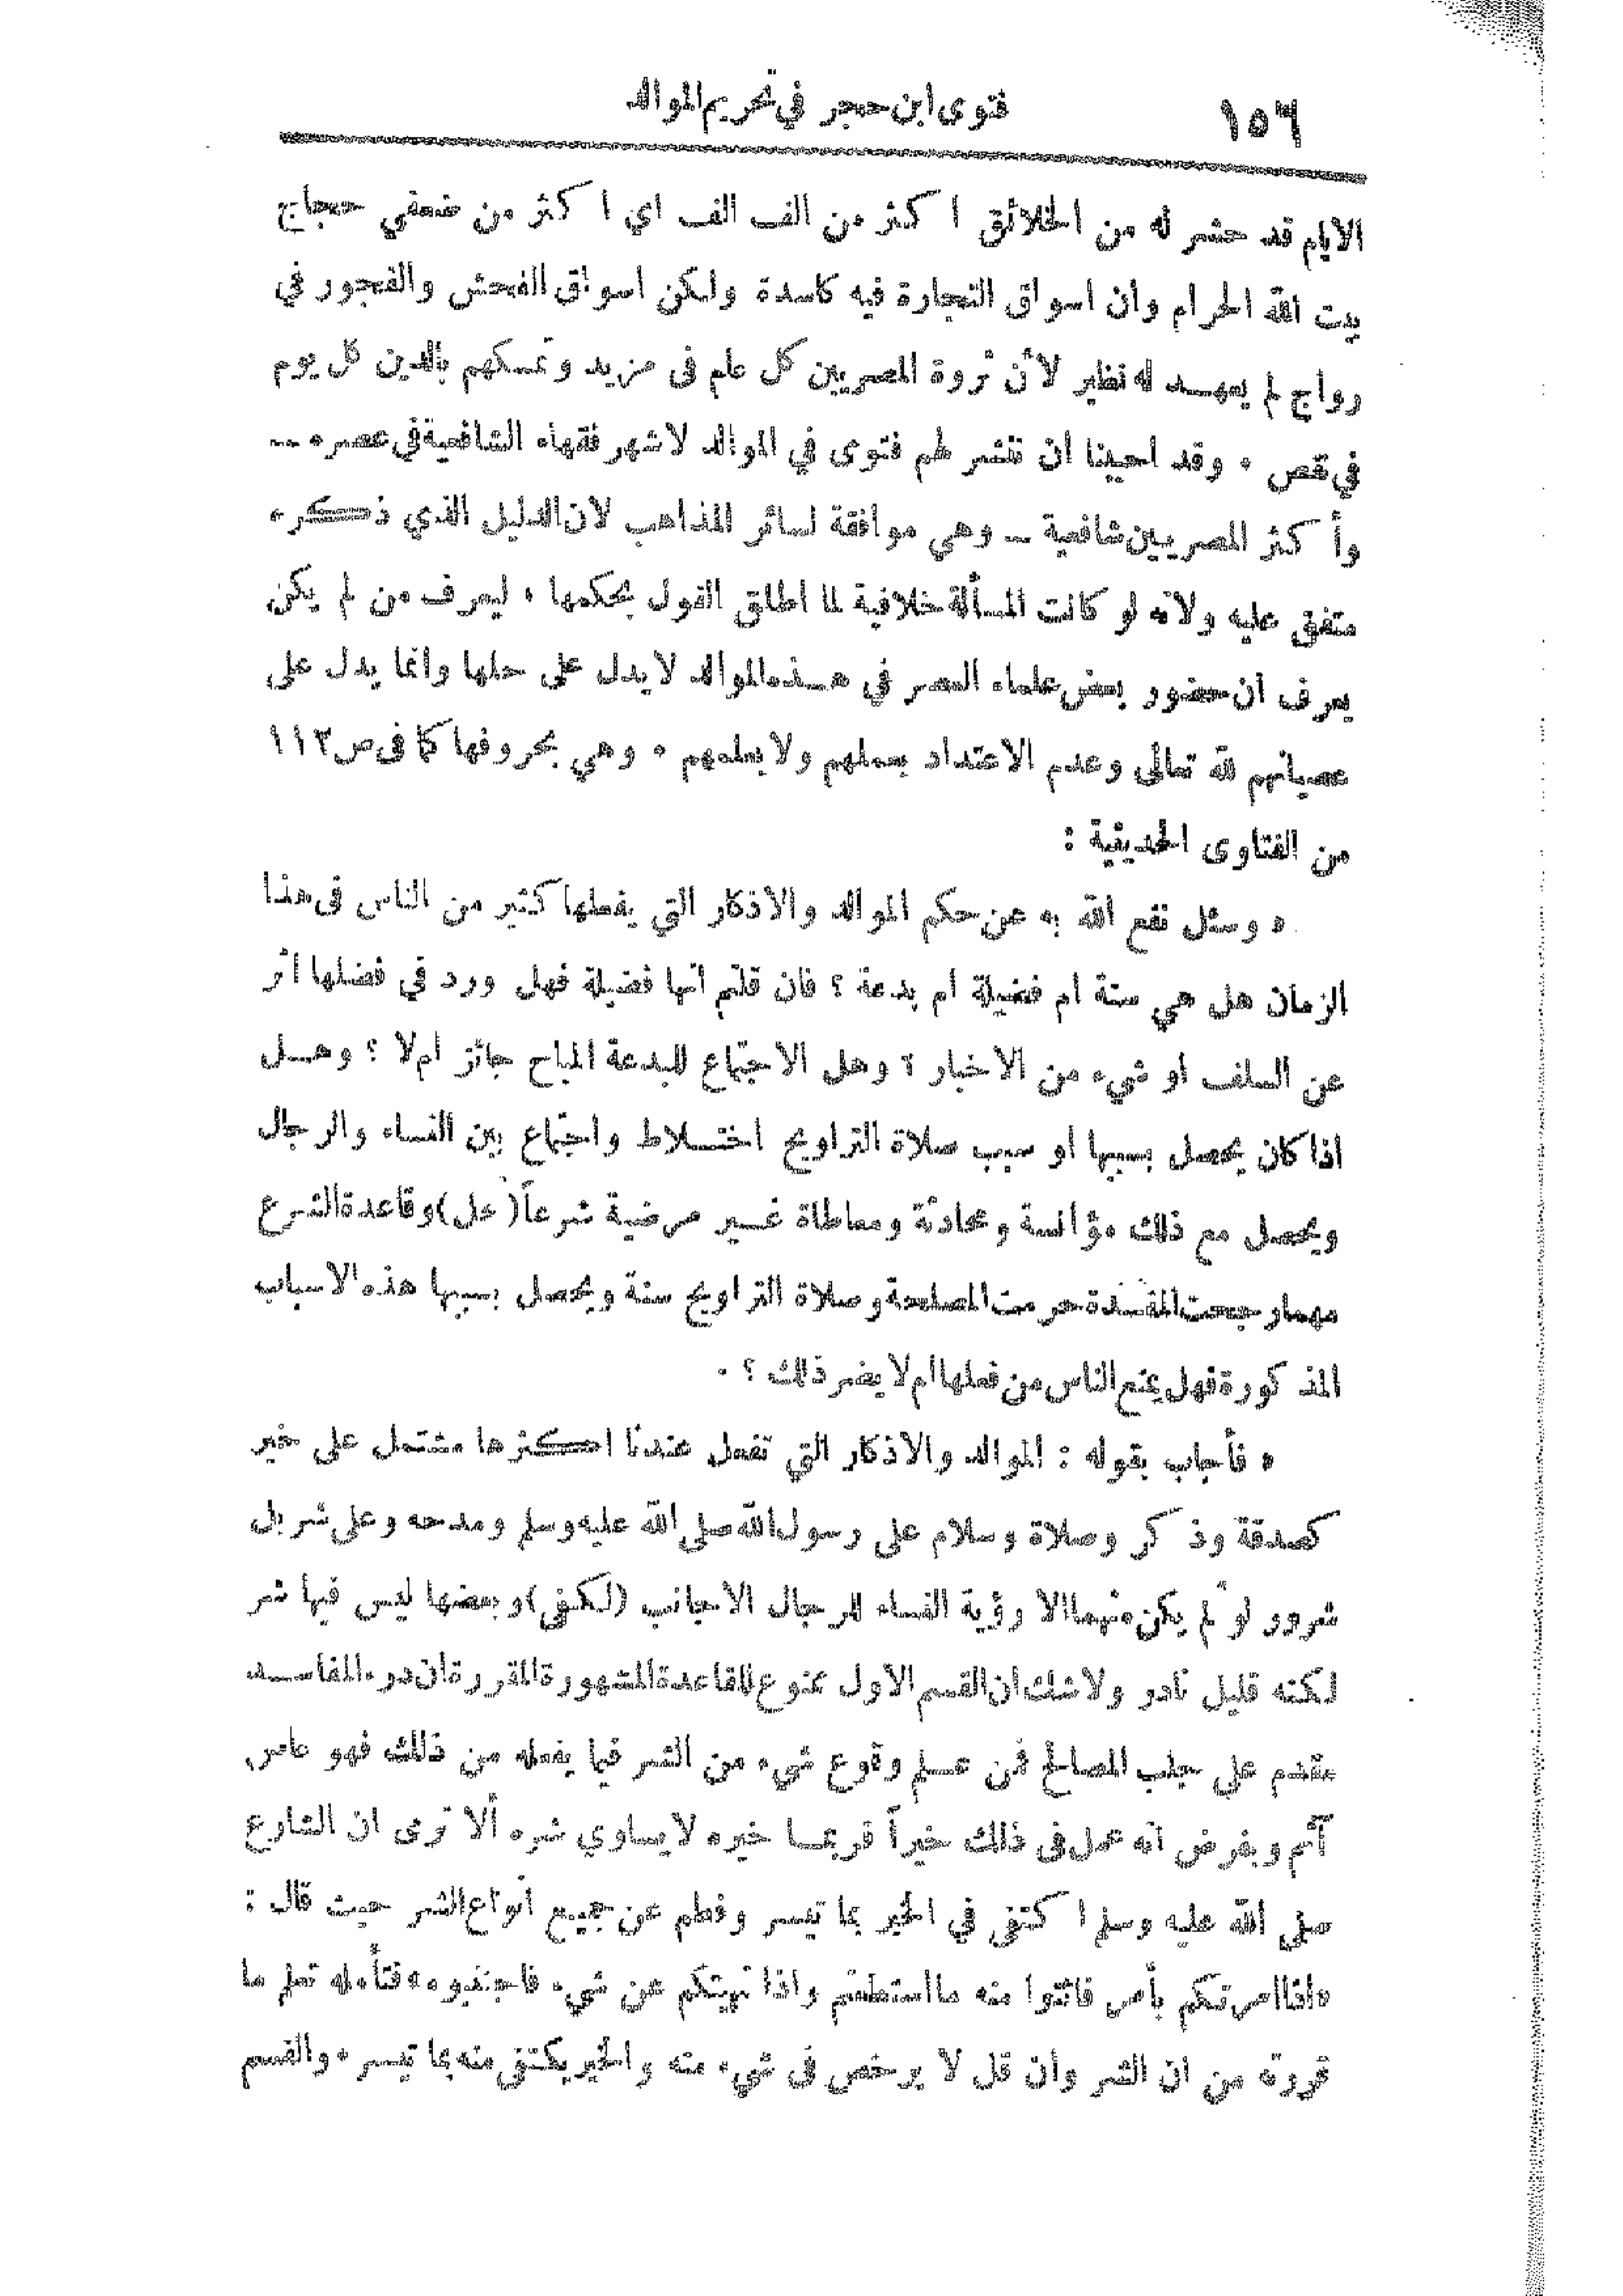 ١٥٦
فتوى ابن حجر في تحريم الموالد
الايام قد حشر له من الخلائق ا كثر من الف الف اي ا كثر من ضعفي حجاج
بيت الله الحرام وان اسواق التجارة فيه كاسدة ولكن اسواق الفحش والفجور في
رواج لم يعهـد له نظير لأن ثروة المصريين كل عام فى مزيد وتمسكهم بالدين كل يوم
في نقص ٠ وقد احببنا ان ننشر لهم فتوى في الموالد لاشهر فقهاء الشافعية في عصره --
وأ كثر المصريين شافعية -- وهي موافقة لسائر المذاهب لان الدليل الذي ذكره
متفق عليه ولانه لو كانت المسألة خلافية لما اطلق القول بحكمها ، ليعرف من لم يكن
يعرف ان حضور بعض علماء العصر في هـذه الموالد لا يدل على حلها وانما يدل على
عصيانهم لله تعالى وعدم الاعتداد بعملهم ولا بعلمهم ٠ وهي بحروفها كما فى ص١١٢
من الفتاوى الحديثية :
« وسئل نفع الله به عن حكم الموالد والاذكار التي يفعلها كثير من الناس فى هذا
الزمان هل هي سنة ام فضيلة ام بدعة ؟ فان قلتم انها فضيلة فهل ورد في فضلها اثر
عن السلف او شيء من الاخبار ؟ وهل الاجتماع للبدعة المباح جائز ام لا ؟ وهـل
اذا كان يحصل بسببها او سبب صلاة التراويح اختـلاط واجتماع بين النساء والرجال
ويحصل مع ذلك مؤانسة ومحادثة ومعاطاة غـير مرضية شرعاً ( حل ) وقاعدة الشرع
مهما رجحت المفسدة حرمت المصلحة وصلاة التراويح سنة ويحصل بسببها هذه الاسباب
المذ كورة فهل يمنع الناس من فعلها ام لا يضر ذلك ؟ ٠
« فأجاب بقوله : الموالد والاذكار التي تفعل عندنا اكثرها مشتمل على خير
كصدقة وذ كر وصلاة وسلام على رسول الله صلى الله عليه وسلم ومدحه وعلى شر بل
شرور لو لم يكن منهما الا رؤية النساء للرجال الاجانب (لكفى) وبعضها ليس فيها شر
لكنه قليل نادر ولا شك ان القسم الاول ممنوع للقاعدة المشهورة المقررة ان درء المفاسـد
مقدم على جلب المصالح فمن عـلم وقوع شيء من الشر فيما يفعله من ذلك فهو عاص
آثم وبفرض انه عمل فى ذلك خيراً فربمـا خيره لا يساوي شره ألا ترى ان الشارع
صلى الله عليه وسلم ا كتفى في الخير بما تيسر وفطم عن جميع أنواع الشر حيث قال :
«اذا امرتكم بأمر فائتوا منه ما استطعتم واذا نهيتكم عن شيء فاجتنبوه» فتأمله تعلم ما
قررته من ان الشر وان قل لا يرخص فى شيء منه والخير يكتفى منه بما تيسر ٠ والقسم